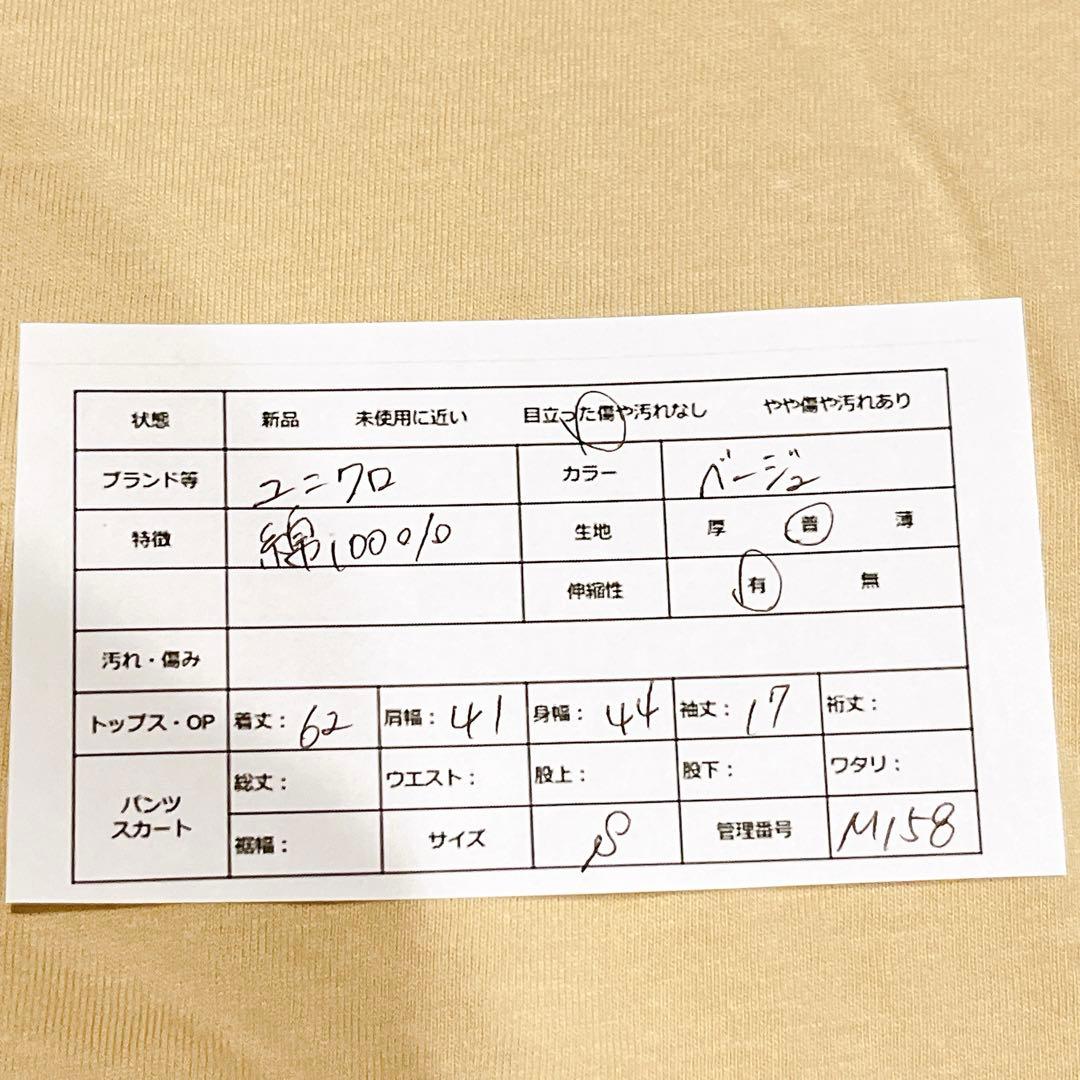 状態 新品 未使用に近い 目立った傷や汚れなし やや傷や汚れあり
ブランド等 ユニクロ カラー ベージュ
特徴 綿100% 生地 厚 普 薄
伸縮性 有 無
汚れ・傷み
トップス・OP 着丈: 62 肩幅: 41 身幅: 44 袖丈: 17 裄丈:
パンツ スカート 総丈: ウエスト: 股上: 股下: ワタリ:
裾幅: サイズ S 管理番号 M158